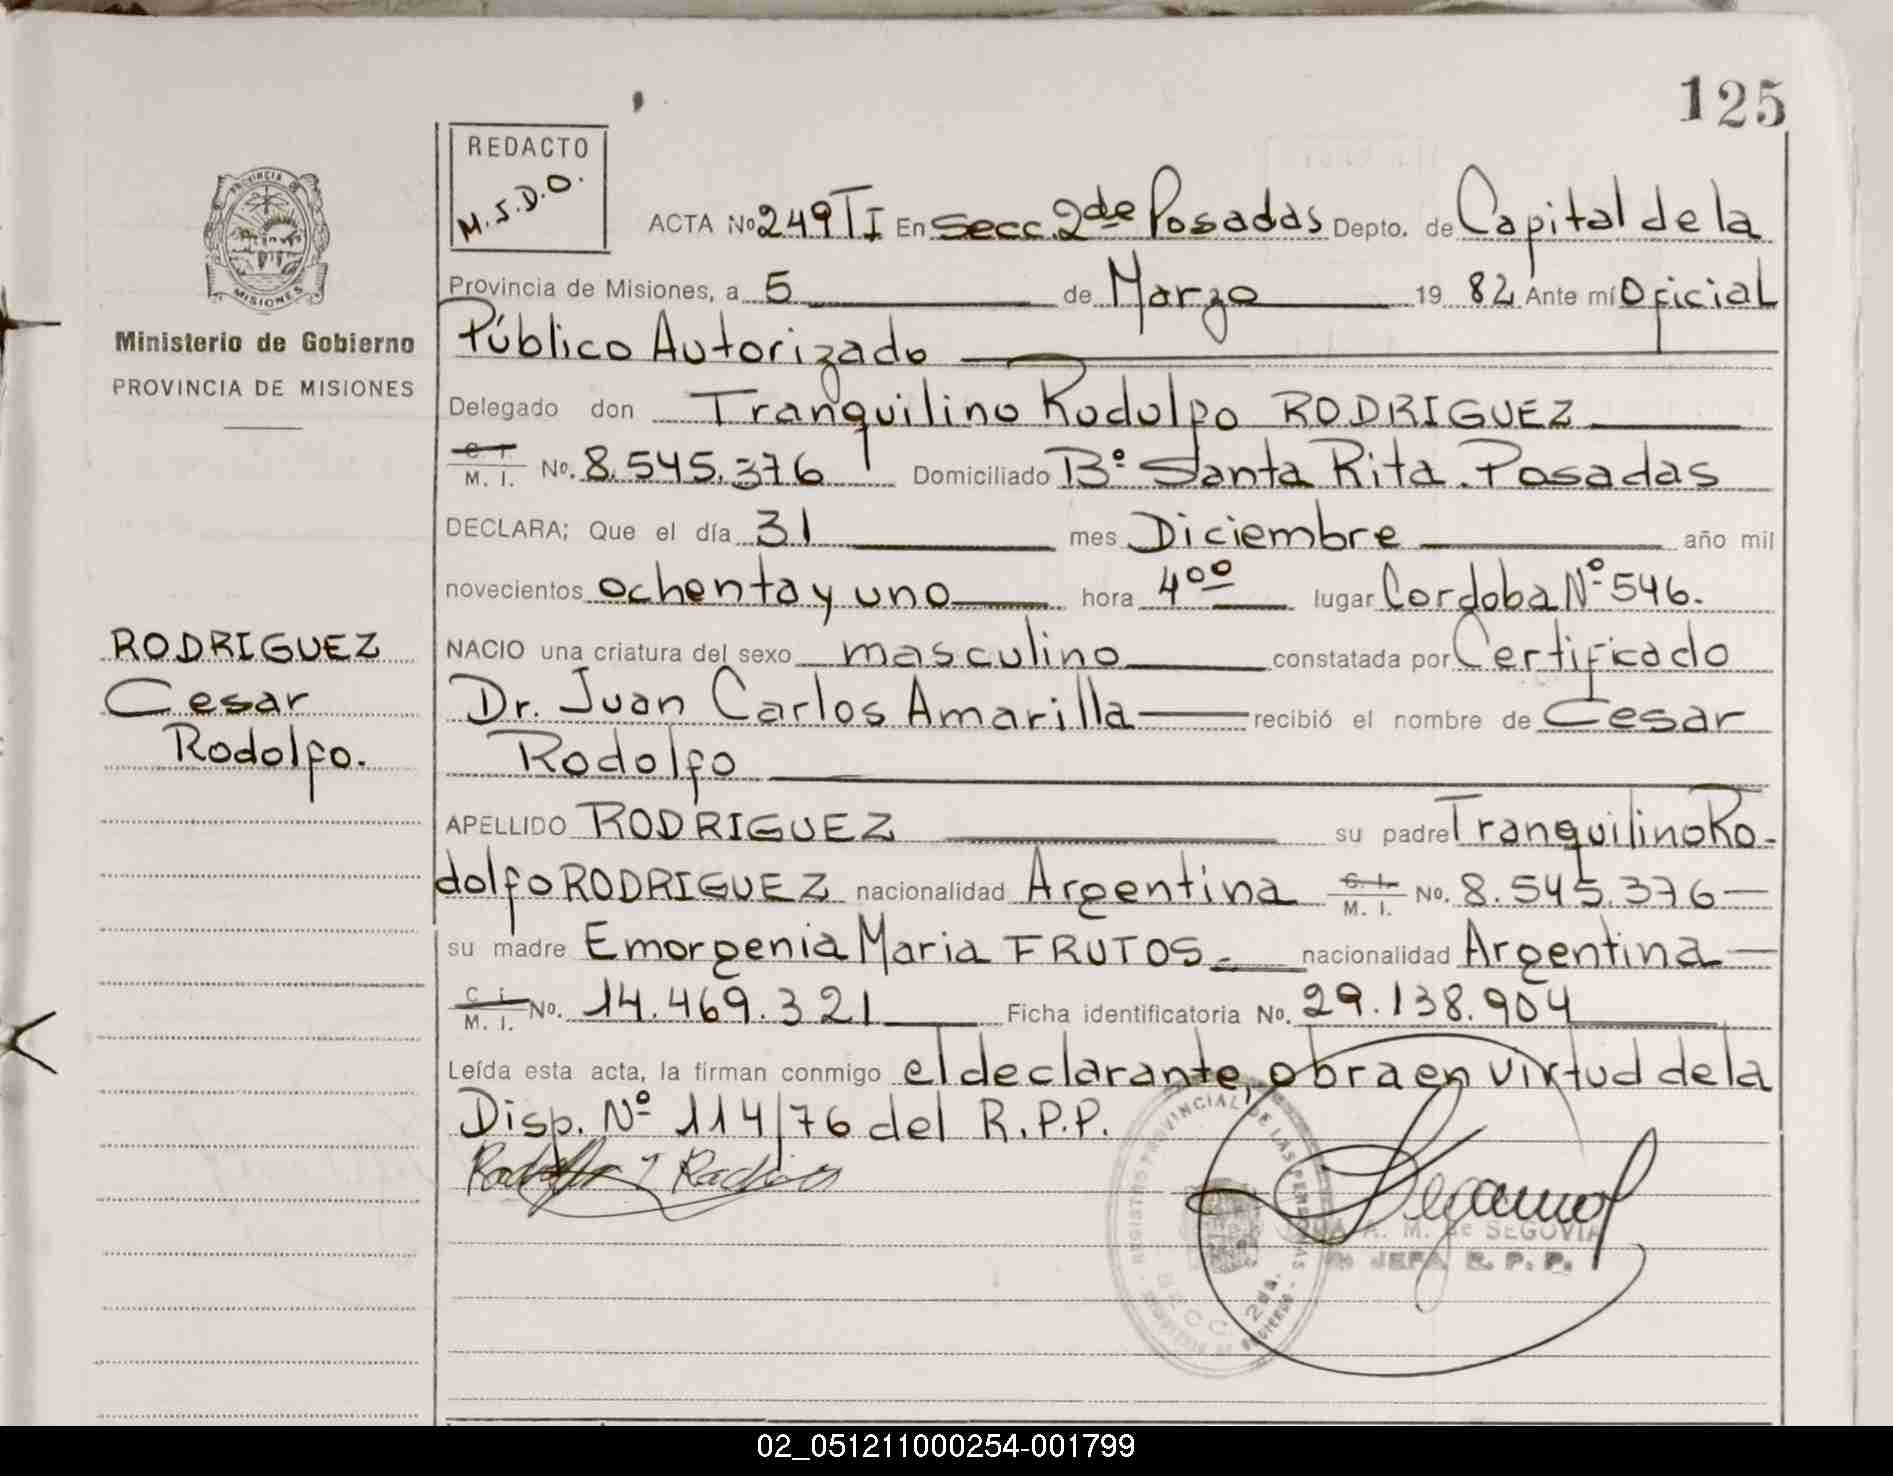 125
REDACTO
M.S.D.O.
PROVINCIA DE
MISIONES
ACTA No 249 TI En Secc. 2de Posadas Depto. de Capital de la
Provincia de Misiones, a 5 de Marzo 19 82 Ante mí Oficial
Ministerio de Gobierno
Público Autorizado
PROVINCIA DE MISIONES
Delegado don Tranquilino Rodolfo RODRIGUEZ
C. I.
M. I. No. 8.545.376 Domiciliado Bº Santa Rita. Posadas
DECLARA; Que el día 31 mes Diciembre año mil
novecientos ochenta y uno hora 4ºº lugar Cordoba Nº 546.
RODRIGUEZ
Cesar
Rodolfo.
NACIO una criatura del sexo masculino constatada por Certificado
Dr. Juan Carlos Amarilla recibió el nombre de Cesar
Rodolfo
APELLIDO RODRIGUEZ su padre Tranquilino Ro-
dolfo RODRIGUEZ nacionalidad Argentina C. I. M. I. No. 8.545.376
su madre Emorgenia Maria FRUTOS nacionalidad Argentina
C. I.
M. I. No. 14.469.321 Ficha identificatoria No. 29.138.904
Leída esta acta, la firman conmigo el declarante, obra en virtud de la
Disp. Nº 114/76 del R.P.P.
REGISTRO PROVINCIAL DE LAS PERSONAS
SECC. 2da.
A. M. de SEGOVIA
JEFA R. P. P.
02_051211000254-001799